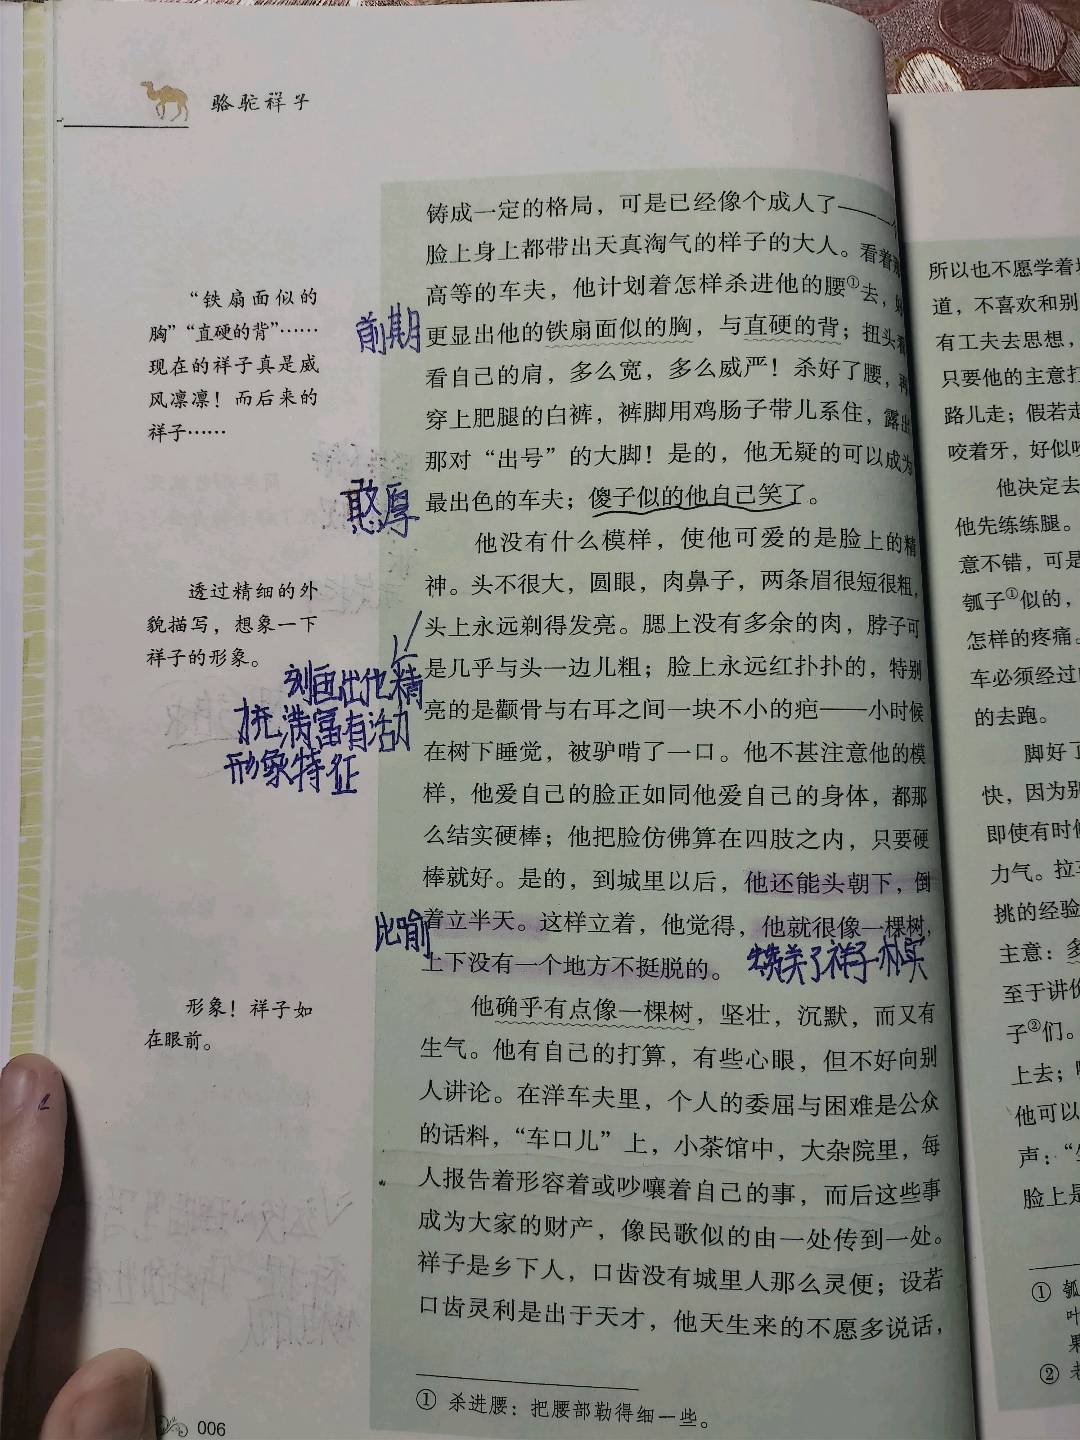 骆驼祥子
“铁扇面似的
胸”“直硬的背”……
现在的祥子真是威
风凛凛！而后来的
祥子……
前期
憨厚
透过精细的外
貌描写，想象一下
祥子的形象。
刻画出他精
充满富有活力
形象特征
比喻
形象！祥子如
在眼前。
铸成一定的格局，可是已经像个成人了——一个
脸上身上都带出天真淘气的样子的大人。看着
高等的车夫，他计划着怎样杀进他的腰①去，
更显出他的铁扇面似的胸，与直硬的背；扭头看
看自己的肩，多么宽，多么威严！杀好了腰，再
穿上肥腿的白裤，裤脚用鸡肠子带儿系住，露出
那对“出号”的大脚！是的，他无疑的可以成为
最出色的车夫；傻子似的他自己笑了。
他没有什么模样，使他可爱的是脸上的精
神。头不很大，圆眼，肉鼻子，两条眉很短很粗，
头上永远剃得发亮。腮上没有多余的肉，脖子可
是几乎与头一边儿粗；脸上永远红扑扑的，特别
亮的是颧骨与右耳之间一块不小的疤——小时候
在树下睡觉，被驴啃了一口。他不甚注意他的模
样，他爱自己的脸正如同他爱自己的身体，都那
么结实硬棒；他把脸仿佛算在四肢之内，只要硬
棒就好。是的，到城里以后，他还能头朝下，倒
着立半天。这样立着，他觉得，他就很像一棵树，
上下没有一个地方不挺脱的。
赞美了祥子朴实
他确乎有点像一棵树，坚壮，沉默，而又有
生气。他有自己的打算，有些心眼，但不好向别
人讲论。在洋车夫里，个人的委屈与困难是公众
的话料，“车口儿”上，小茶馆中，大杂院里，每
人报告着形容着或吵嚷着自己的事，而后这些事
成为大家的财产，像民歌似的由一处传到一处。
祥子是乡下人，口齿没有城里人那么灵便；设若
口齿灵利是出于天才，他天生来的不愿多说话，
① 杀进腰：把腰部勒得细一些。
006
所以也不愿学着
道，不喜欢和别
有工夫去思想，
只要他的主意打
路儿走；假若走
咬着牙，好似
他决定去
他先练练腿。
意不错，可是
瓠子①似的，
怎样的疼痛。
车必须经过
的去跑。
脚好了
快，因为别
即使有时候
力气。拉车
挑的经验
主意：多
至于讲价
子②们。
上去；
他可以
声：“
脸上是
① 瓠
叶
果
② 老